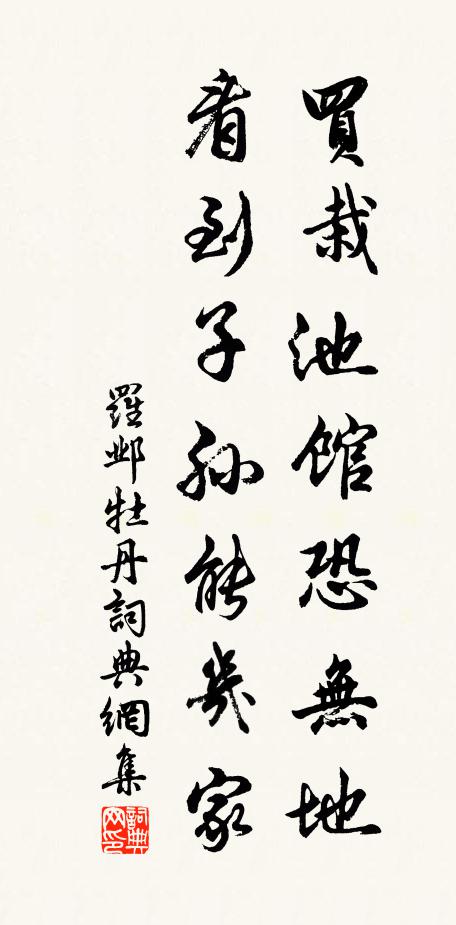 買栽池館恐無地
看到子孫能幾家
羅鄴牡丹詞典網集
詞典网印